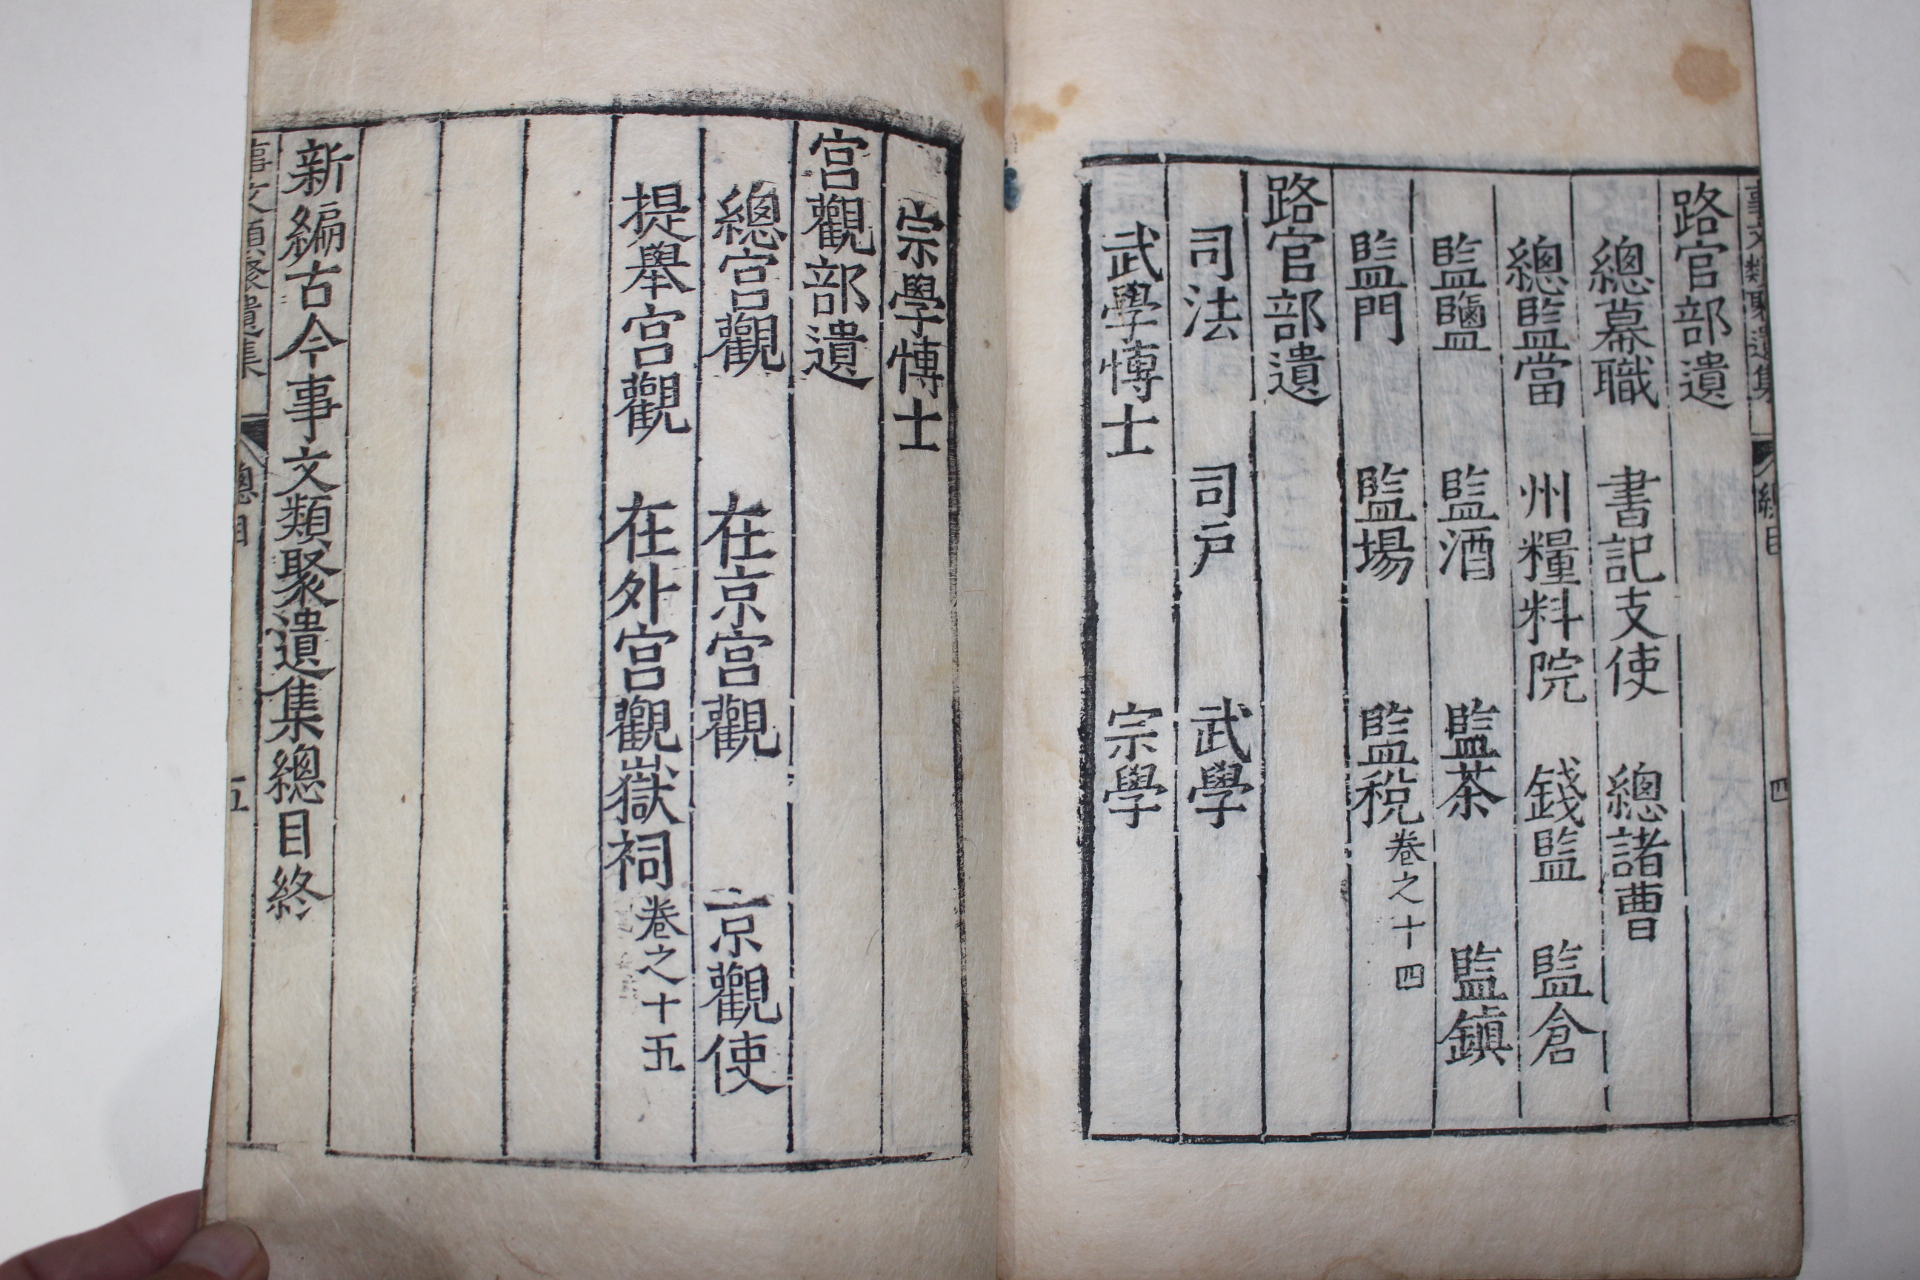 事文類聚遺集 總目 四
路官部遺
總幕職 書記支使 總諸曹
總監當 州糧料院 錢監 監倉
監鹽 監酒 監茶 監鎮
監門 監場 監稅 卷之十四
路官部遺
司法 司戶 武學
武學博士 宗學
宗學博士
宮觀部遺
總宮觀 在京宮觀 京觀使
提舉宮觀 在外宮觀嶽祠 卷之十五
新編古今事文類聚遺集總目終
事文類聚遺集 總目 五